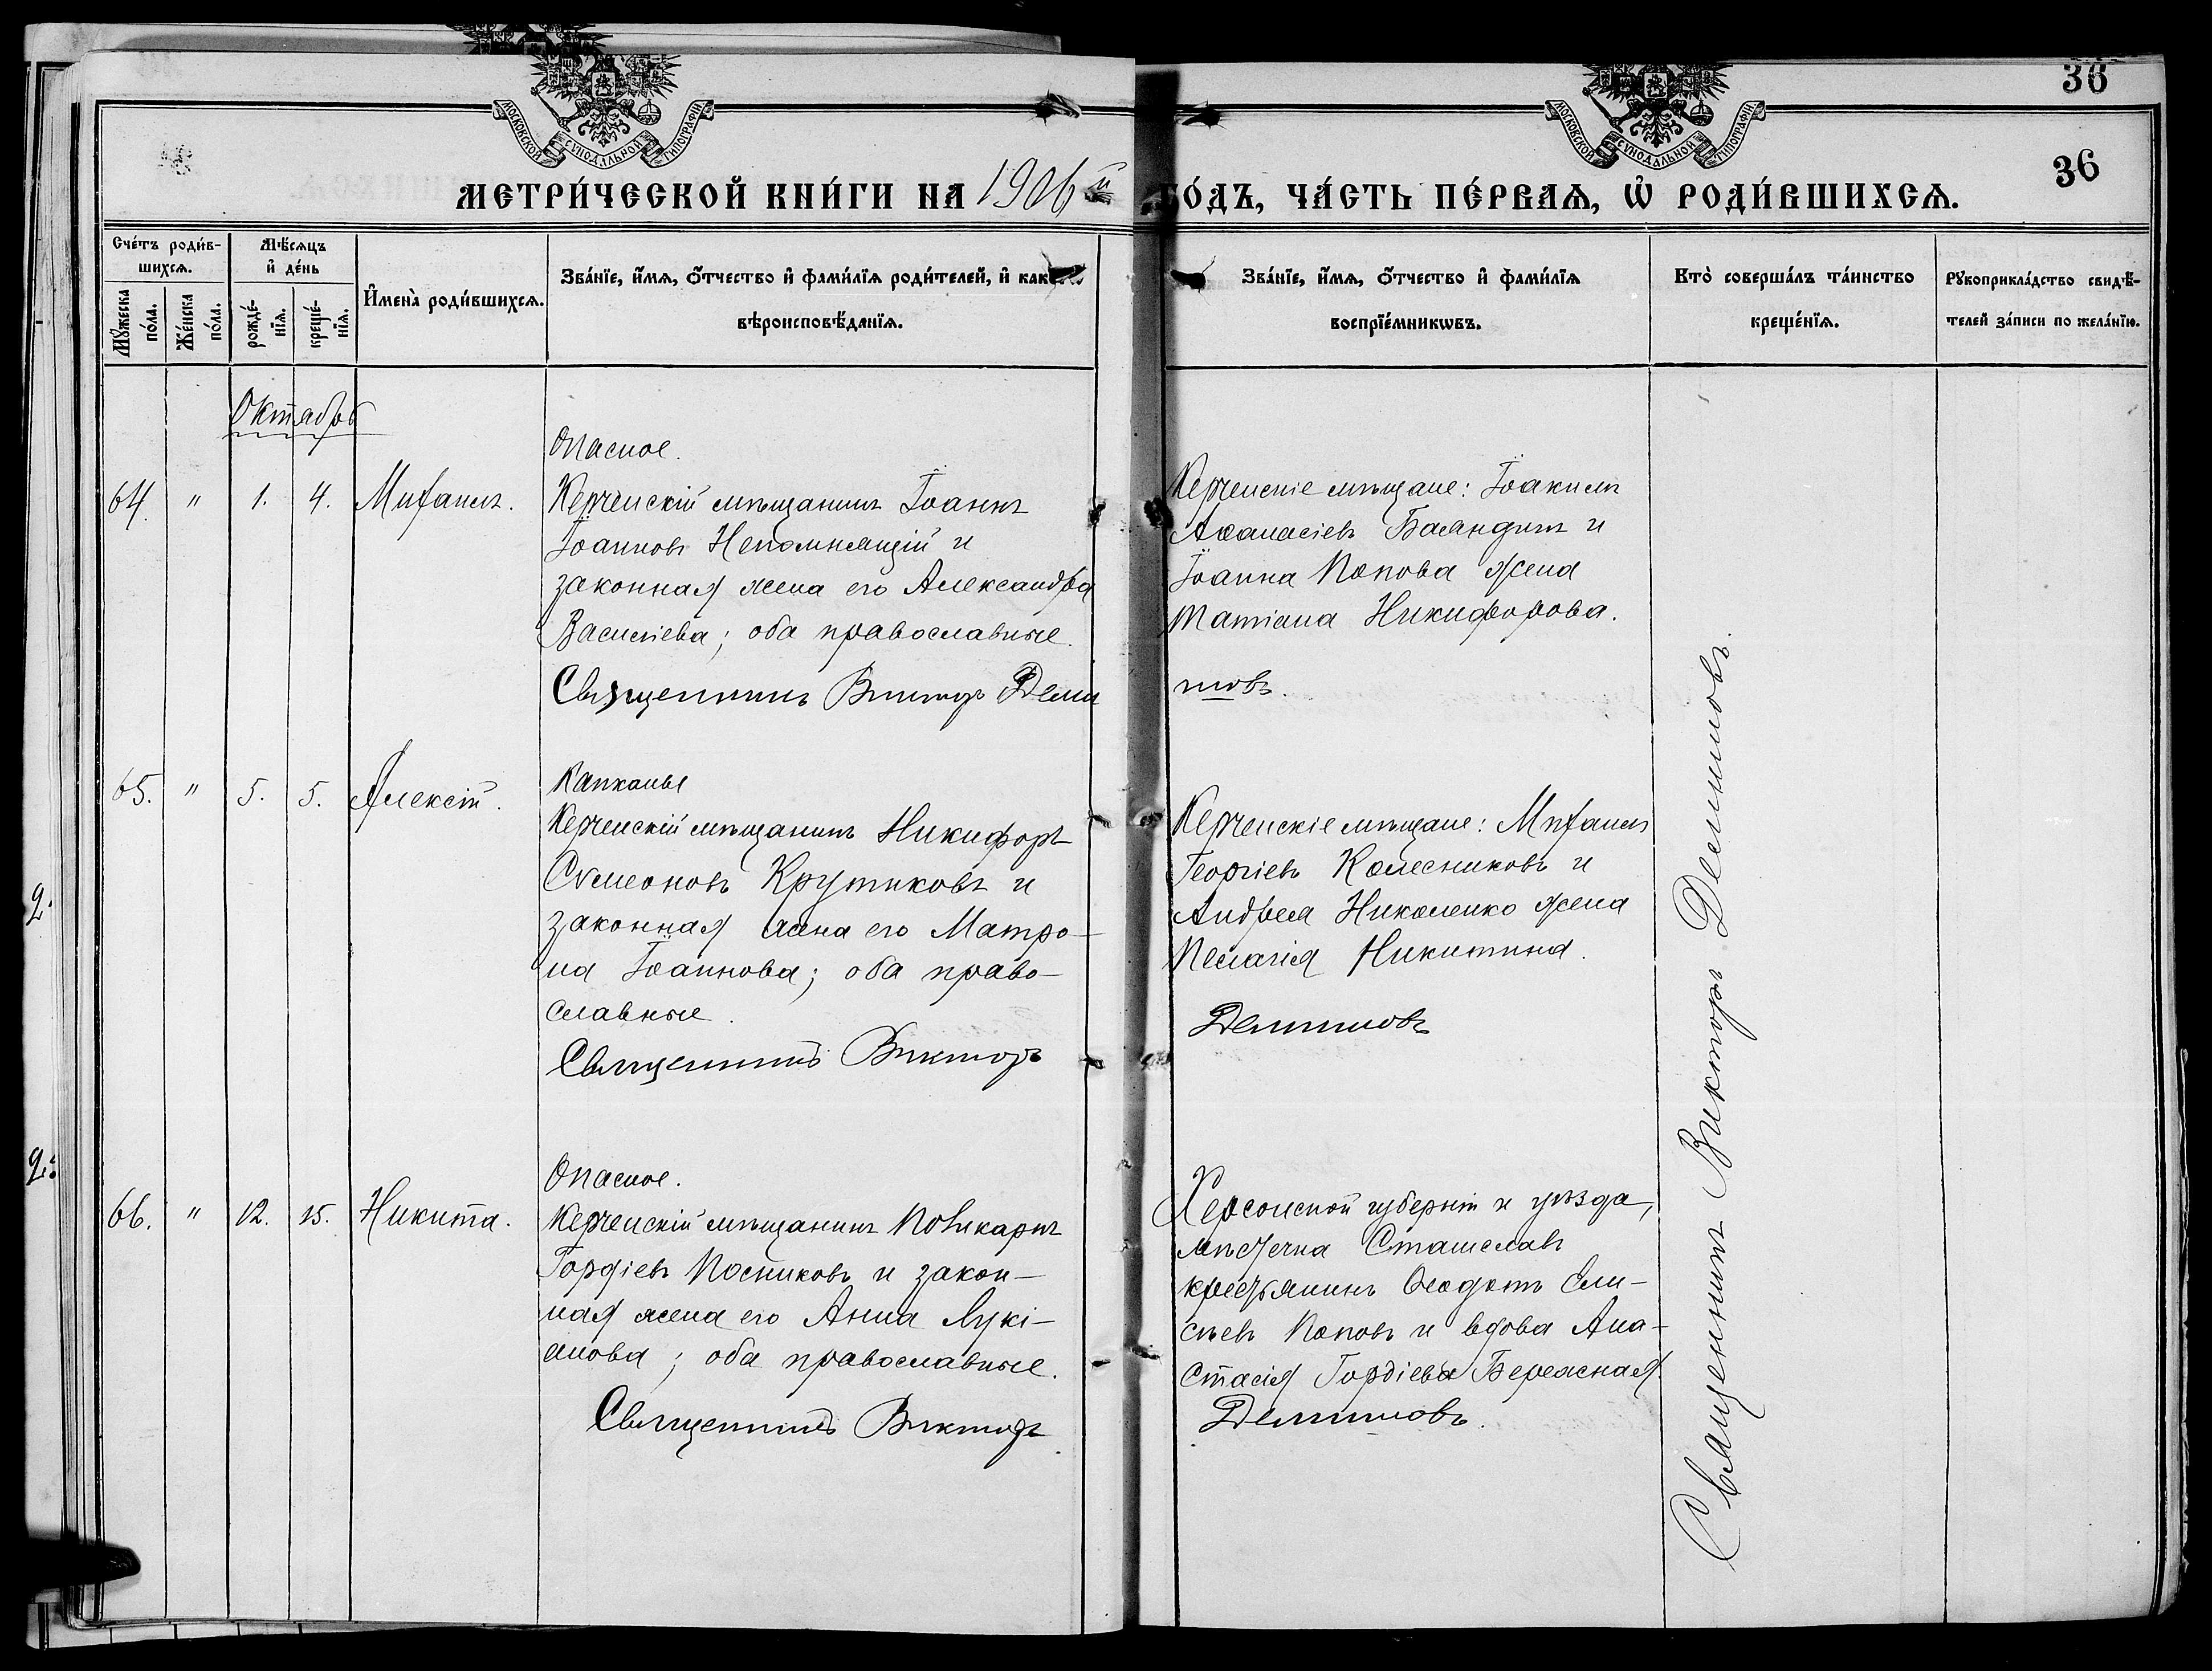 МОСКОВСКОЙ СѴНОДАЛЬНОЙ ТИПОГРАФІИ
МОСКОВСКОЙ СѴНОДАЛЬНОЙ ТИПОГРАФІИ
36
36
МЕТРИ́ЧЕСКОЙ КНИ́ГИ НА 1906 й ГО́ДЪ, ЧА́СТЬ ПЕ́РВАЯ, Ѡ҆ РОДИ́ВШИХСѦ.
Сче́тъ роди́в-
шихсѧ.
Мꙋ́жеска по́ла.
Же́нска по́ла.
Мѣ́сѧцъ
и҆ де́нь
рожде́-
нїѧ.
креще́-
нїѧ.
И҆мена̀ роди́вшихсѧ.
Зва́нїе, и҆́мѧ, ѻ҆́тчество и҆ фами́лїѧ роди́телей, и҆ како́гѡ
вѣроисповѣ́данїѧ.
Зва́нїе, и҆́мѧ, ѻ҆́тчество и҆ фами́лїѧ
воспрїе́мникѡвъ.
Кто̀ соверша́лъ та́инство
креще́нїѧ.
Рꙋкоприкла́дство свидѣ́-
телей за́писи по жела́нїю.
Октябрь
Опасное.
64. " 1. 4. Михаилъ.
Керченскій мѣщанинъ Іоаннъ
Іоанновъ Непомнящій и
законная жена его Александра
Василіева; оба православные.
Священникъ Викторъ Деми
Керченскіе мѣщане: Іоакимъ
Аѳанасіевъ Баландинъ и
Іоанна Попова жена
Татіана Никифорова.
товъ.
65. " 5. 5. Алексій.
Капканы
Керченскій мѣщанинъ Никифоръ
Сѵмеоновъ Крутиковъ и
законная жена его Матро-
на Іоаннова; оба право-
славные.
Священникъ Викторъ
Керченскіе мѣщане: Михаилъ
Георгіевъ Колесниковъ и
Андрея Николенко жена
Пелагія Никитина.
66. " 12. 15. Никита.
Опасное.
Керченскій мѣщанинъ Поликарпъ
Гордіевъ Посниковъ и закон-
ная жена его Анна Лукі-
анова; оба православные.
Священникъ Викторъ
Херсонской губерніи и уѣзда,
мѣстечка Станиславъ
крестьянинъ Ѳеодотъ Ели-
сѣевъ Поповъ и вдова Ана-
стасія Гордіева Бережная.
Священникъ Викторъ
2.
2.